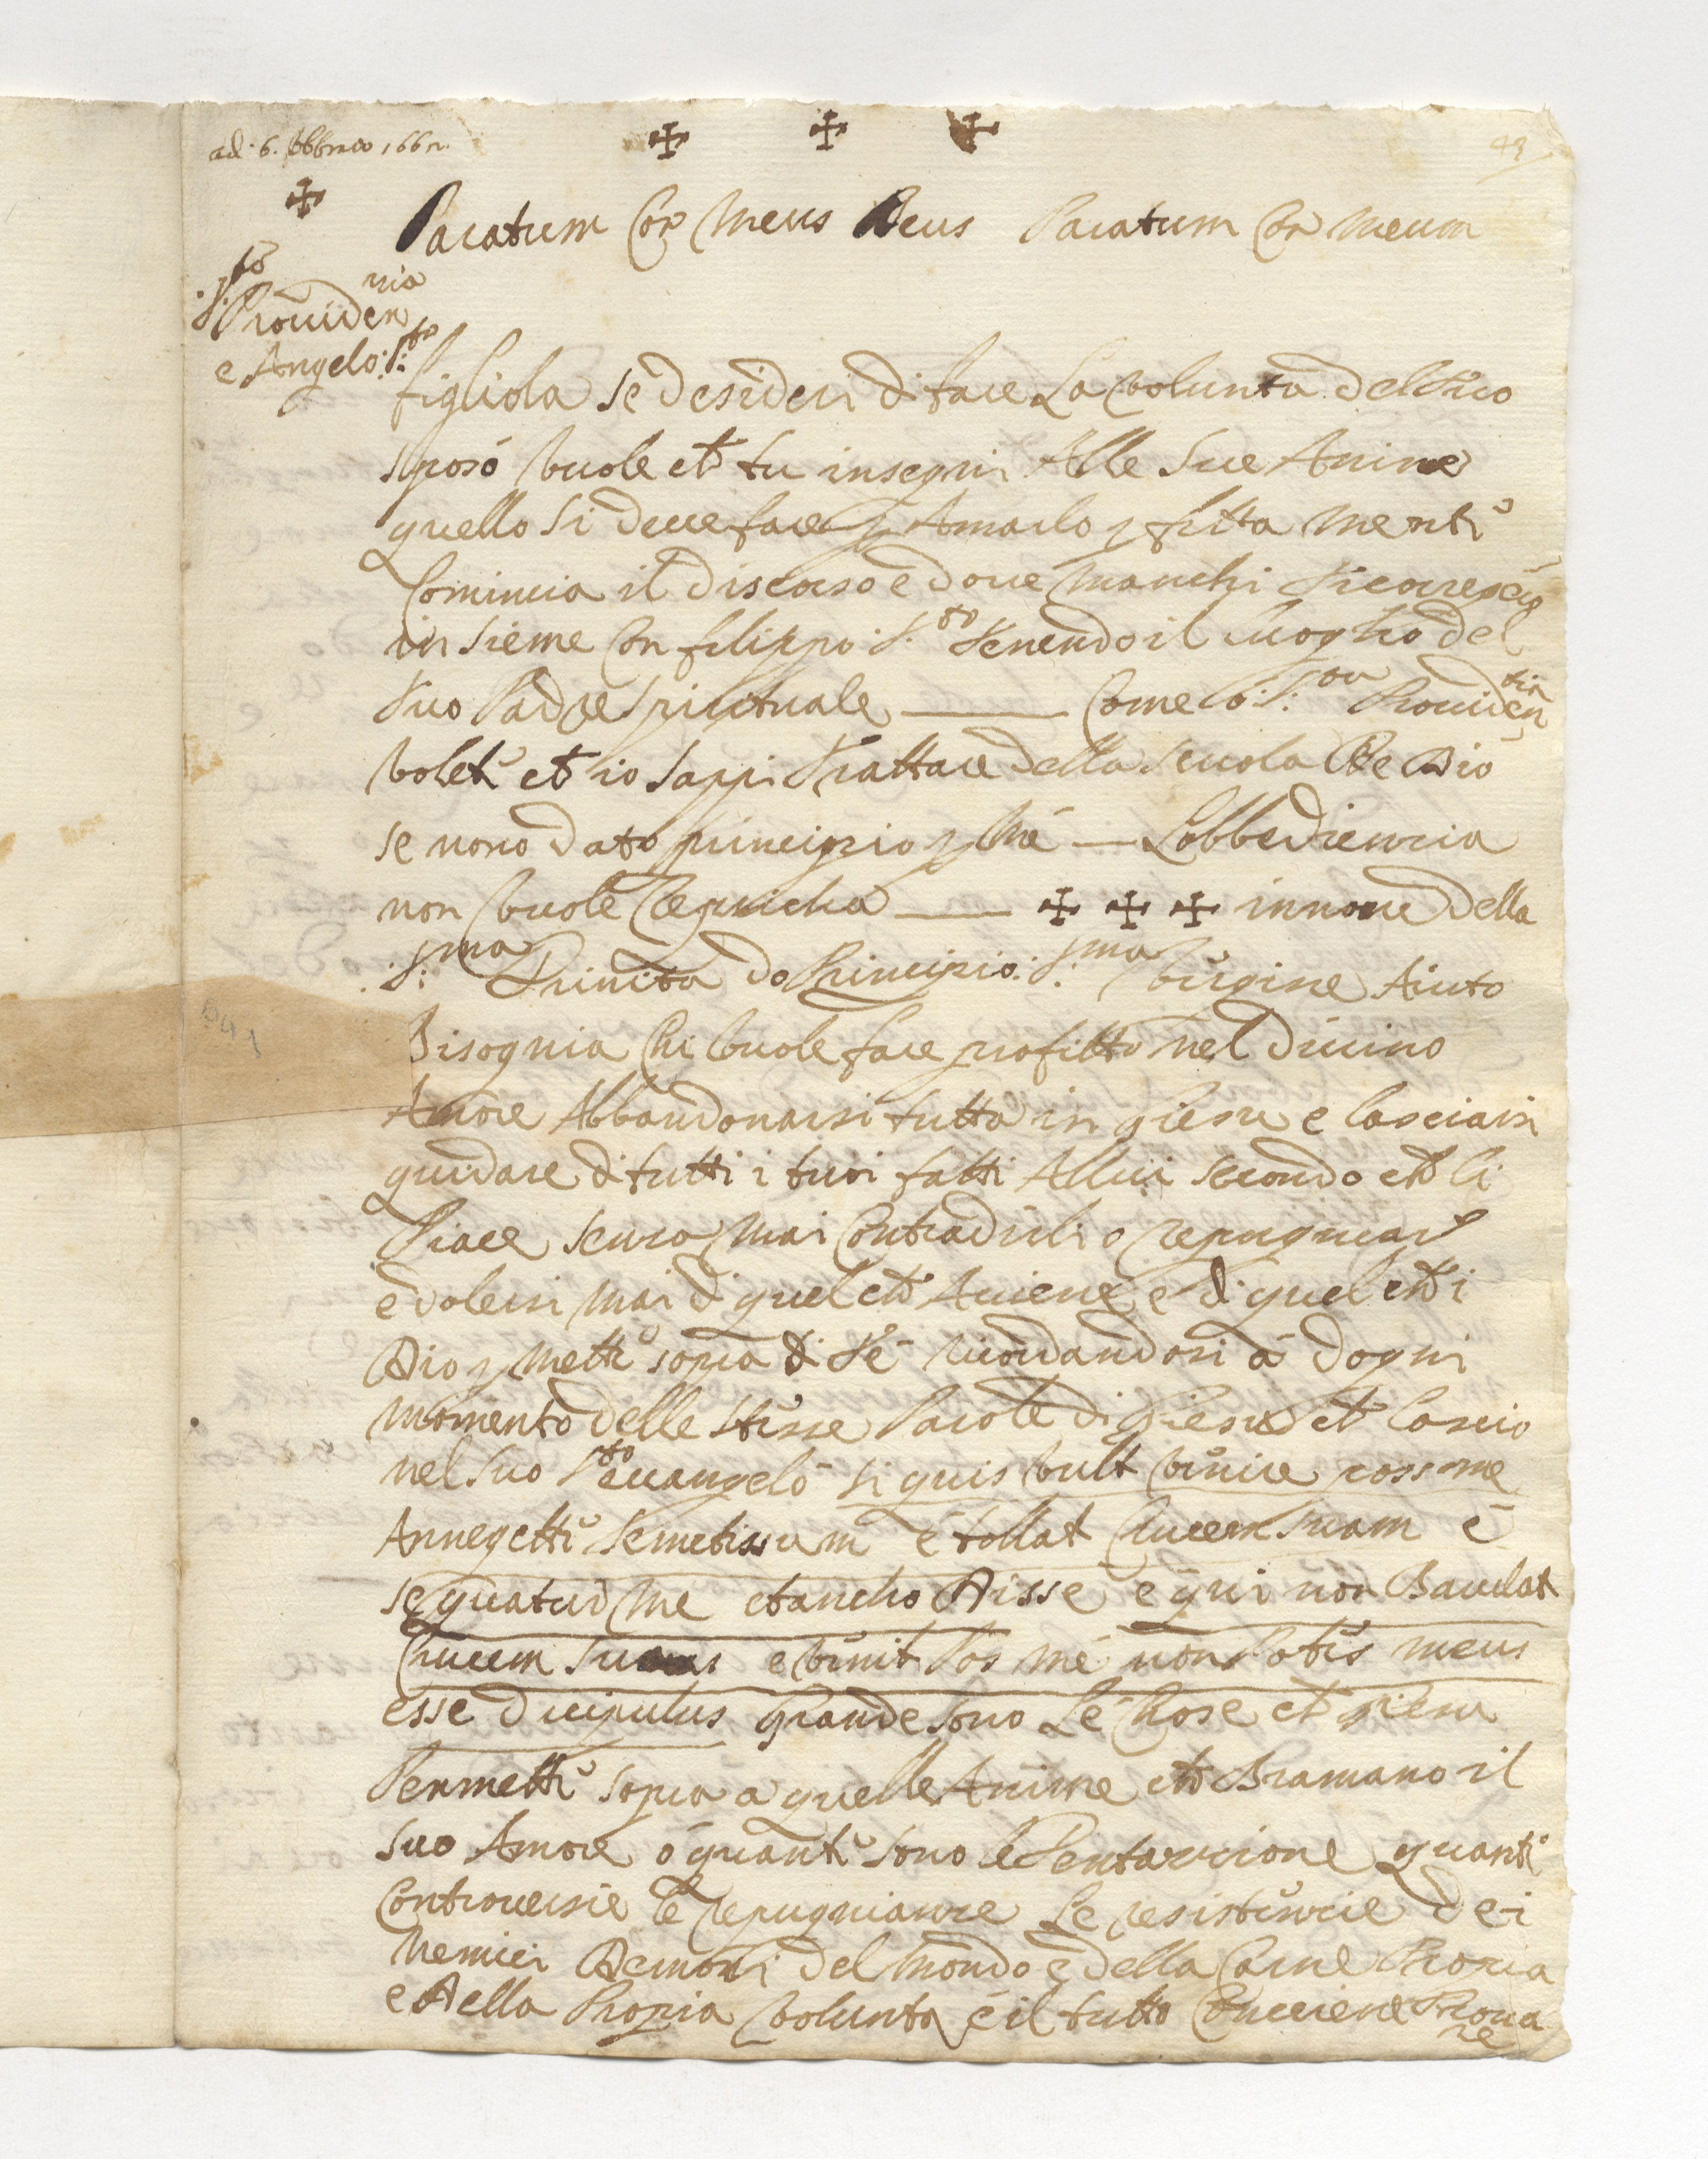 ad: 6. febbraio 166
43
Paratum Cor Meus Deus Paratum Cor meum
S.to
Prouiden nia
e Angelo: S:to
figliola se desideri di fare La volunta del tuo
sposó vuole che tu insegni Alle Sue Anime
quello si deue fare p Amarlo p fetta mente
Comincia il discorso e doue manchi
in sieme Con filippo S.to tenendo il luogho del
tuo Padre spirituale — Come ó S. Prouiden tia
volete che io sappi trattare della scuola De Dio
se nono dato principio p Mé — Lobbedienzia
non vuole replicha — ✠ ✠ ✠ in nome della
:S:ma Trinita do Principio: S:ma Vergine Aiuto
Bisognia Chi vuole fare profitto nel diuino
Amore Abbandonarsi tutta in giesu e lasciarsi
guidare di tutti i tuoi fatti Allui secondo che li
Piace senza mai Contradirli o repugniare
e dolersi mai di quel che Auiene e di quel che i
Dio p mette sopra di te ricordandosi á dogni
momento delle stesse Parole di giesu che lascio
nel suo S.to euangelo si quis vult venire poss me
Anneghetti semetissum e tollat Crucem suam e
sequatud me et ancho Disse e qui non Baudat
Crucem suam e venit Pos me non Potes meus
esse dicipulus Grande sono Le Chose che giesu
Permette sopra a quelle Anime che Bramano il
suo Amore ó quante sono le Tentazzione quante
Controuersie le repugnianze Le resistenzie de i
Nemici Demoni del Mondo e della Carne Propia
e della Propia volunta e il tutto Conuiene Proua
re